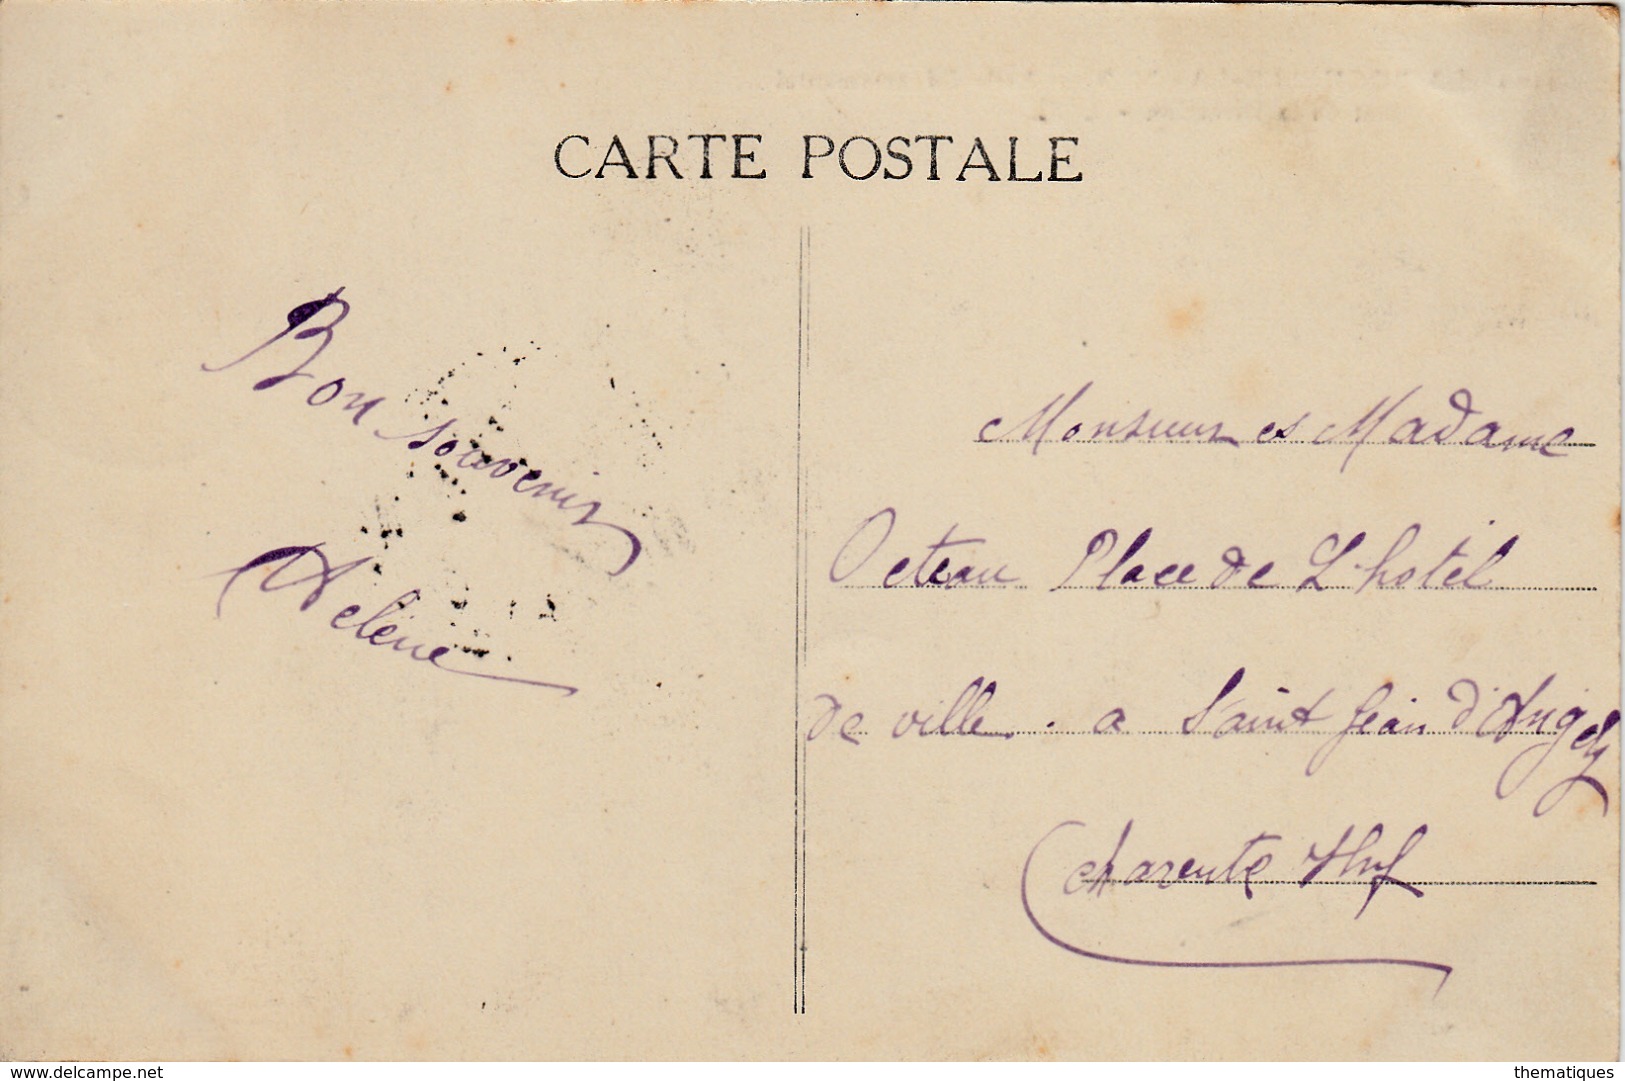 CARTE POSTALE
Bon souvenir
Hélène
Monsieur et Madame
Octeau Place de L'hotel
de ville. a Saint Jean d'Angely
Charente Inf
www.delcampe.net
thematiques